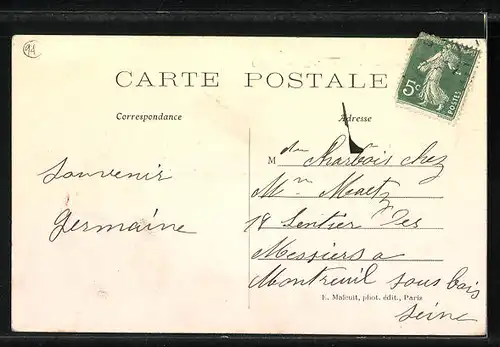 94
CARTE POSTALE
Correspondance
Adresse
5c
POSTES
Souvenir
Germaine
M de Charbois chez
Mr Meaetz
18 Sentier Des
Messiers a
Montreuil sous bois
Seine
E. Malcuit, phot. édit., Paris